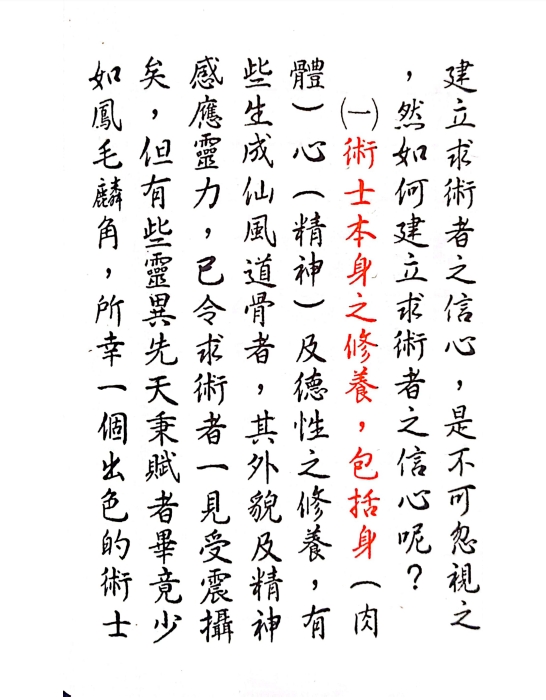 建立求術者之信心，是不可忽視之
，然如何建立求術者之信心呢？
㈠術士本身之修養，包括身（肉
體）心（精神）及德性之修養，有
些生成仙風道骨者，其外貌及精神
感應靈力，已令求術者一見受震攝
矣，但有些靈異先天秉賦者畢竟少
如鳳毛麟角，所幸一個出色的術士